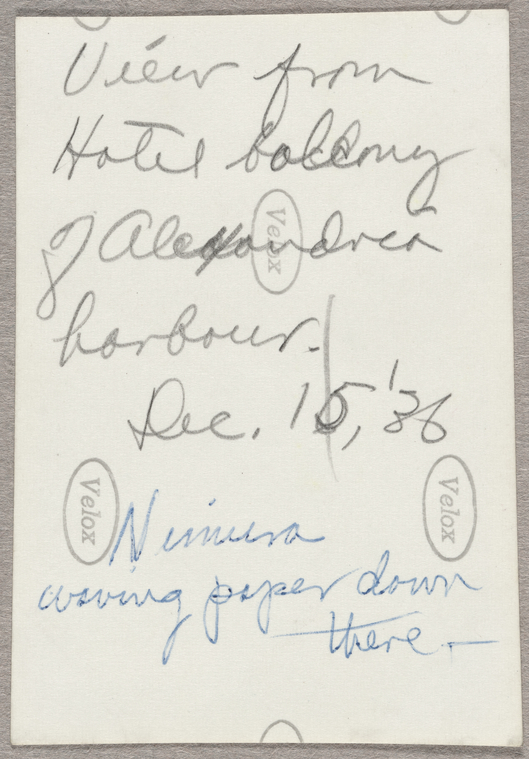 View from
Hotel balcony
of Alexandria
harbour.
Dec. 15, '36
Velox
Velox
Velox
Nimura
waving paper down
there —